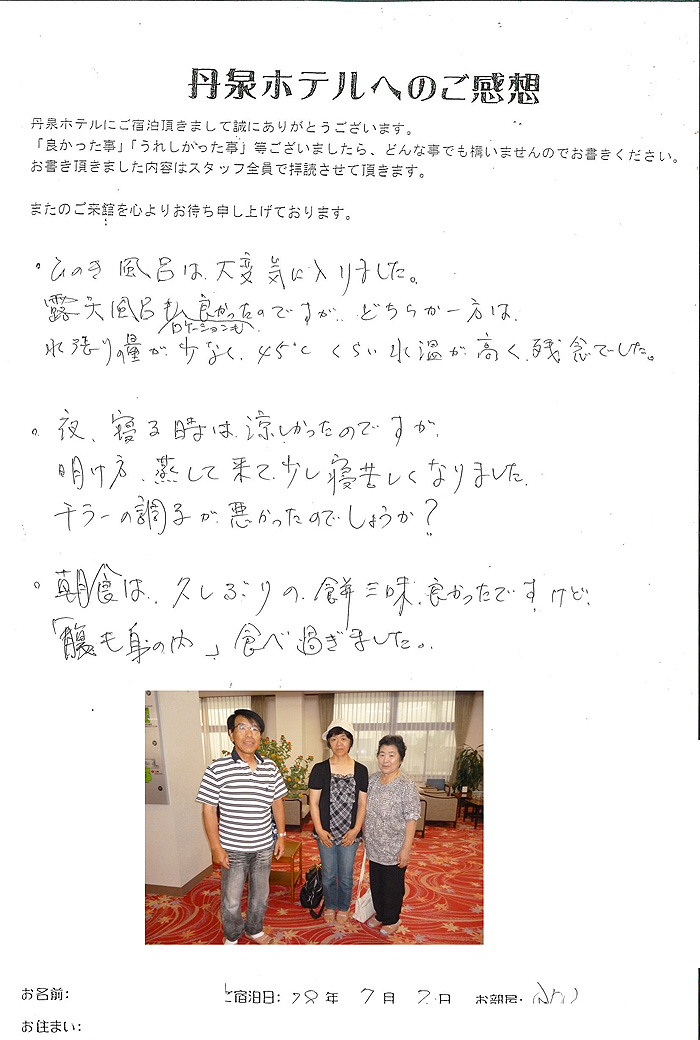 丹泉ホテルへのご感想
丹泉ホテルにご宿泊頂きまして誠にありがとうございます。
「良かった事」「うれしかった事」等ございましたら、どんな事でも構いませんのでお書きください。
お書き頂きました内容はスタッフ全員で拝読させて頂きます。
またのご来館を心よりお待ち申し上げております。
・ひのき風呂は、大変気に入りました。
露天風呂も良かったのですが、どちらか一方は、
ロケーションも
水張りの量が少なく、45℃くらい水温が高く、残念でした。
。夜、寝る時は涼しかったのですが、
明け方、蒸して来て、少し寝苦しくなりました。
チラーの調子が悪かったのでしょうか?
。朝食は、久しぶりの、餅三昧、良かったですけど、
「腹も身の内」食べ過ぎました。
お名前:
ご宿泊日: 年 7月 2日 お部屋:
お住まい: